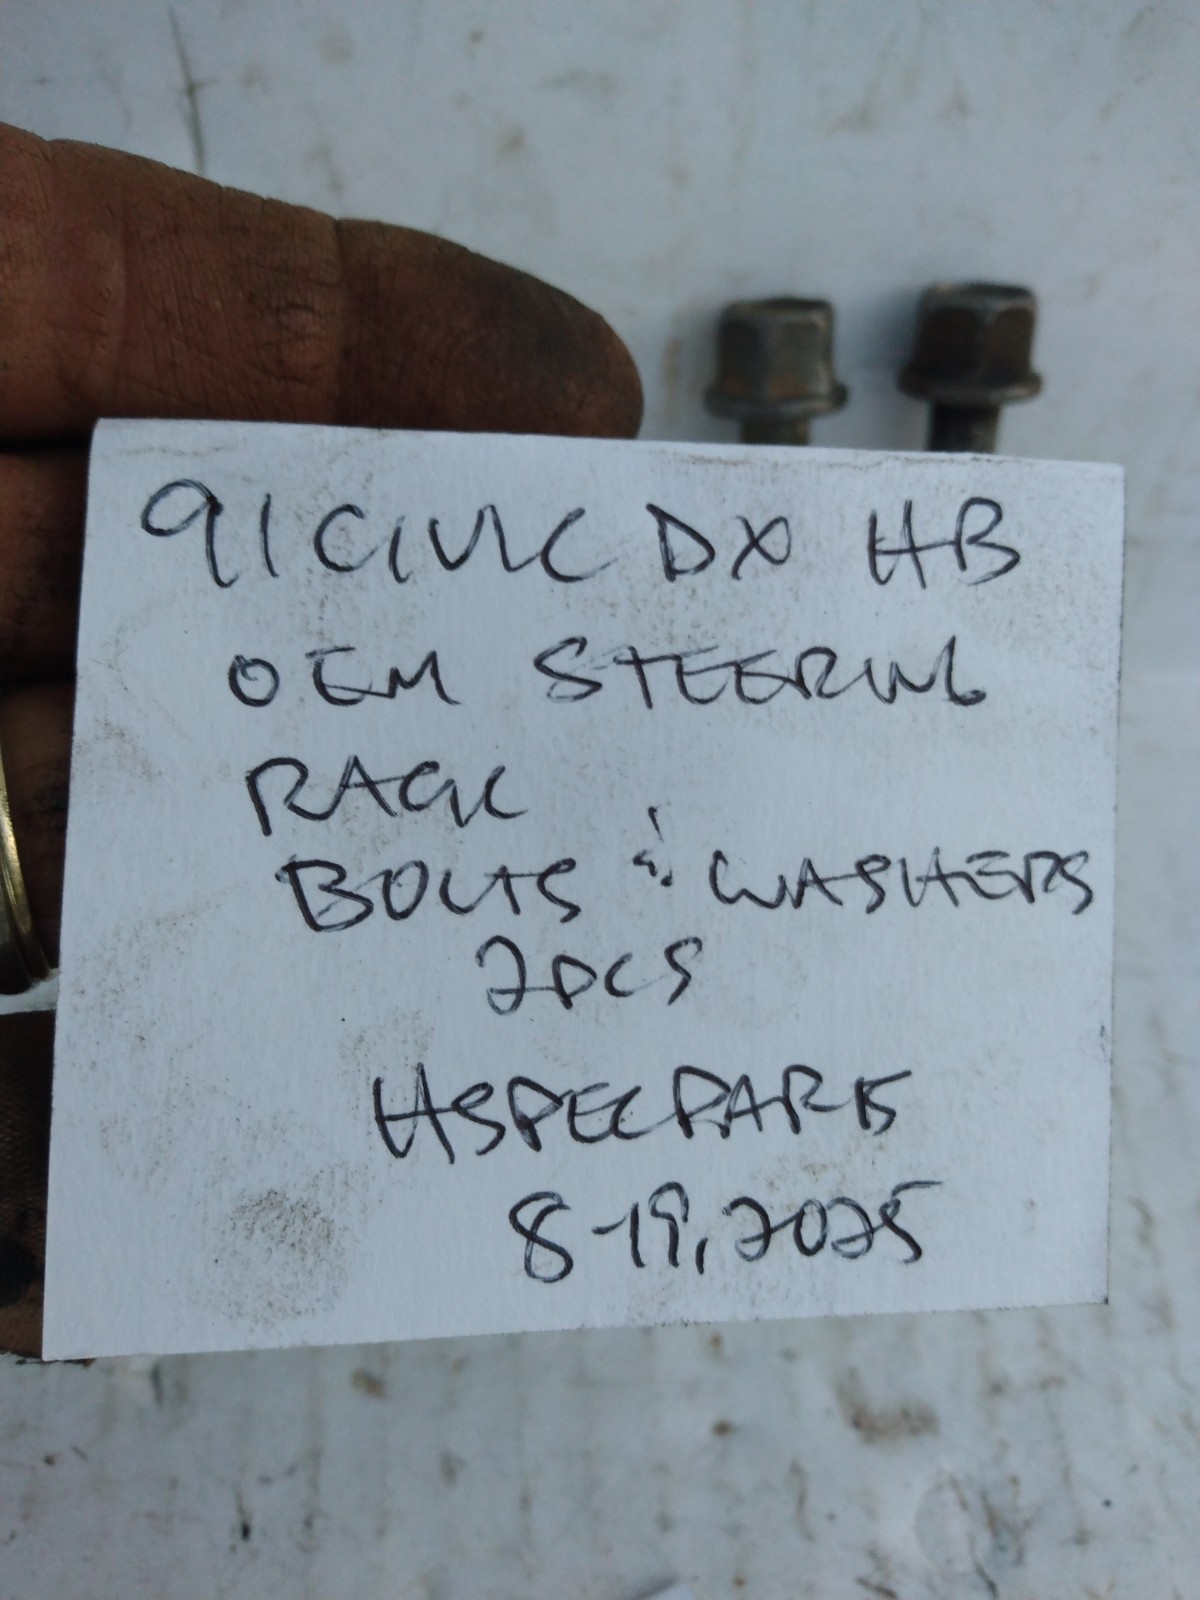 91 CIVIC DX HB
OEM STEERING
RACK
BOLTS & WASHERS
2PCS
HSPECPARTS
8-19, 2025